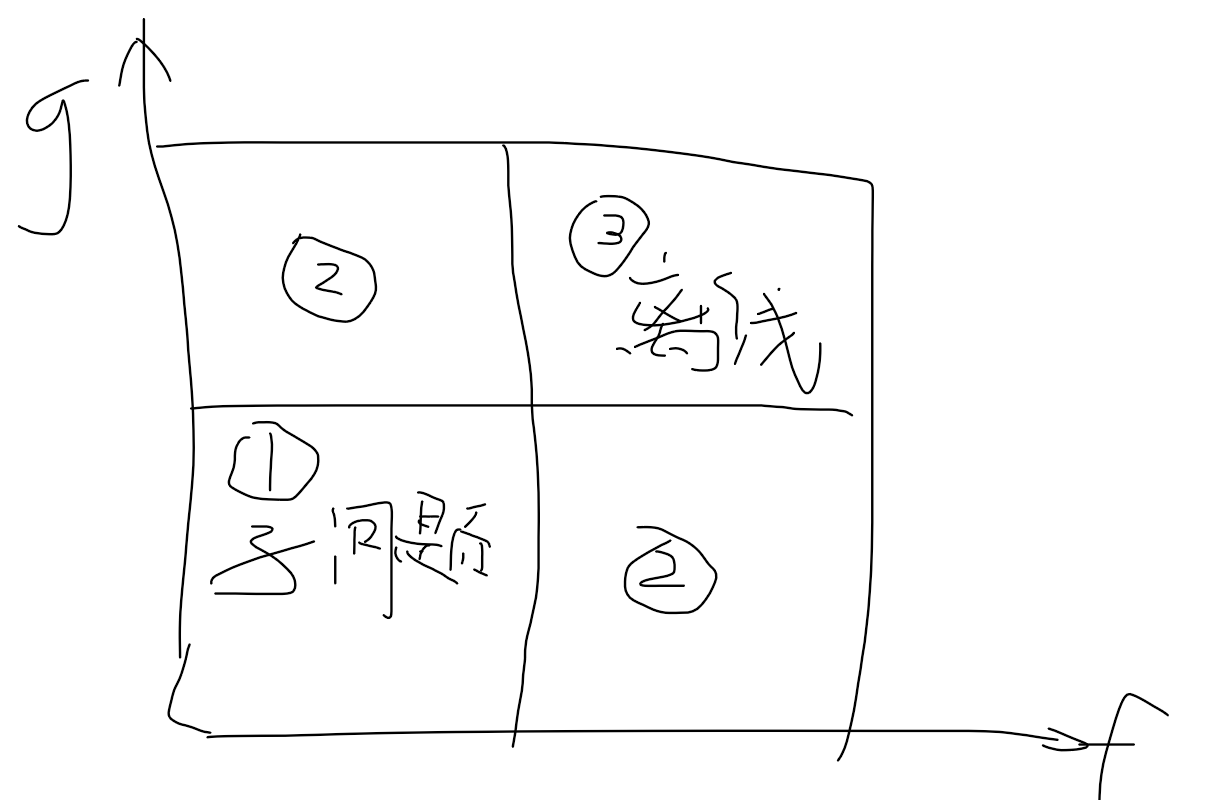 g
②
③
离线
①
子问题
②
f